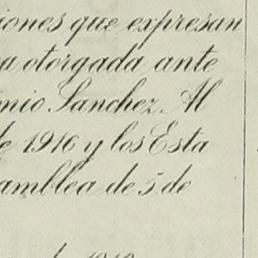 iones que expresan
a otorgada ante
nio Sanchez. Al
de 1916 y los Esta
amblea de 5 de
1919